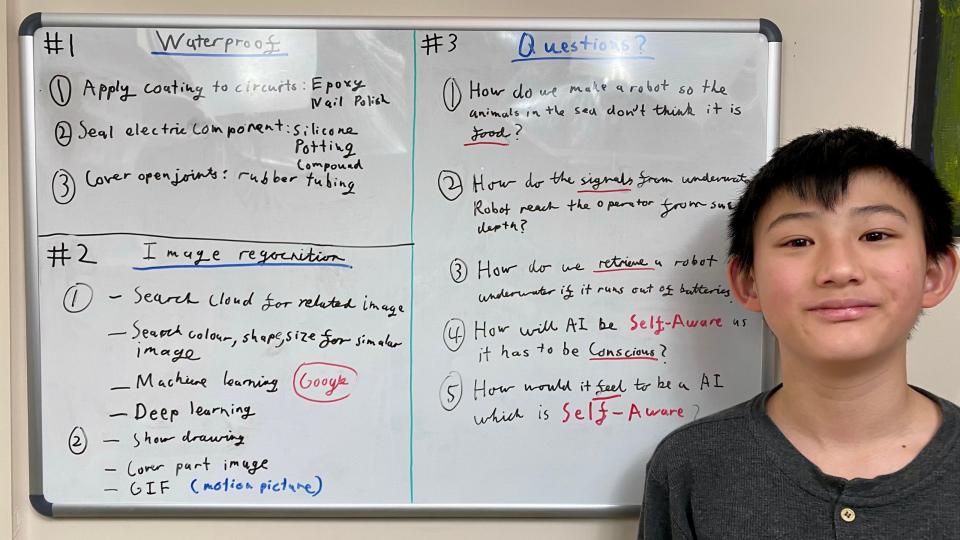 #1 Waterproof
① Apply coating to circuits: Epoxy
Nail Polish
② Seal electric component: Silicone
Potting
Compound
③ Cover open joints: rubber tubing
#2 Image regocnition
① – Search cloud for related image
– Search colour, shape, size for simalar
image
– Machine learning Google
– Deep learning
② – Show drawing
– Cover part image
– GIF (motion picture)
#3 Questions?
① How do we make a robot so the
animals in the sea don't think it is
food?
② How do the signals from
Robot reach the operator from
depth?
③ How do we retrieve a robot
underwater if it runs out of batteries
④ How will AI be Self-Aware as
it has to be Conscious?
⑤ How would it feel to be a AI
which is Self-Aware?